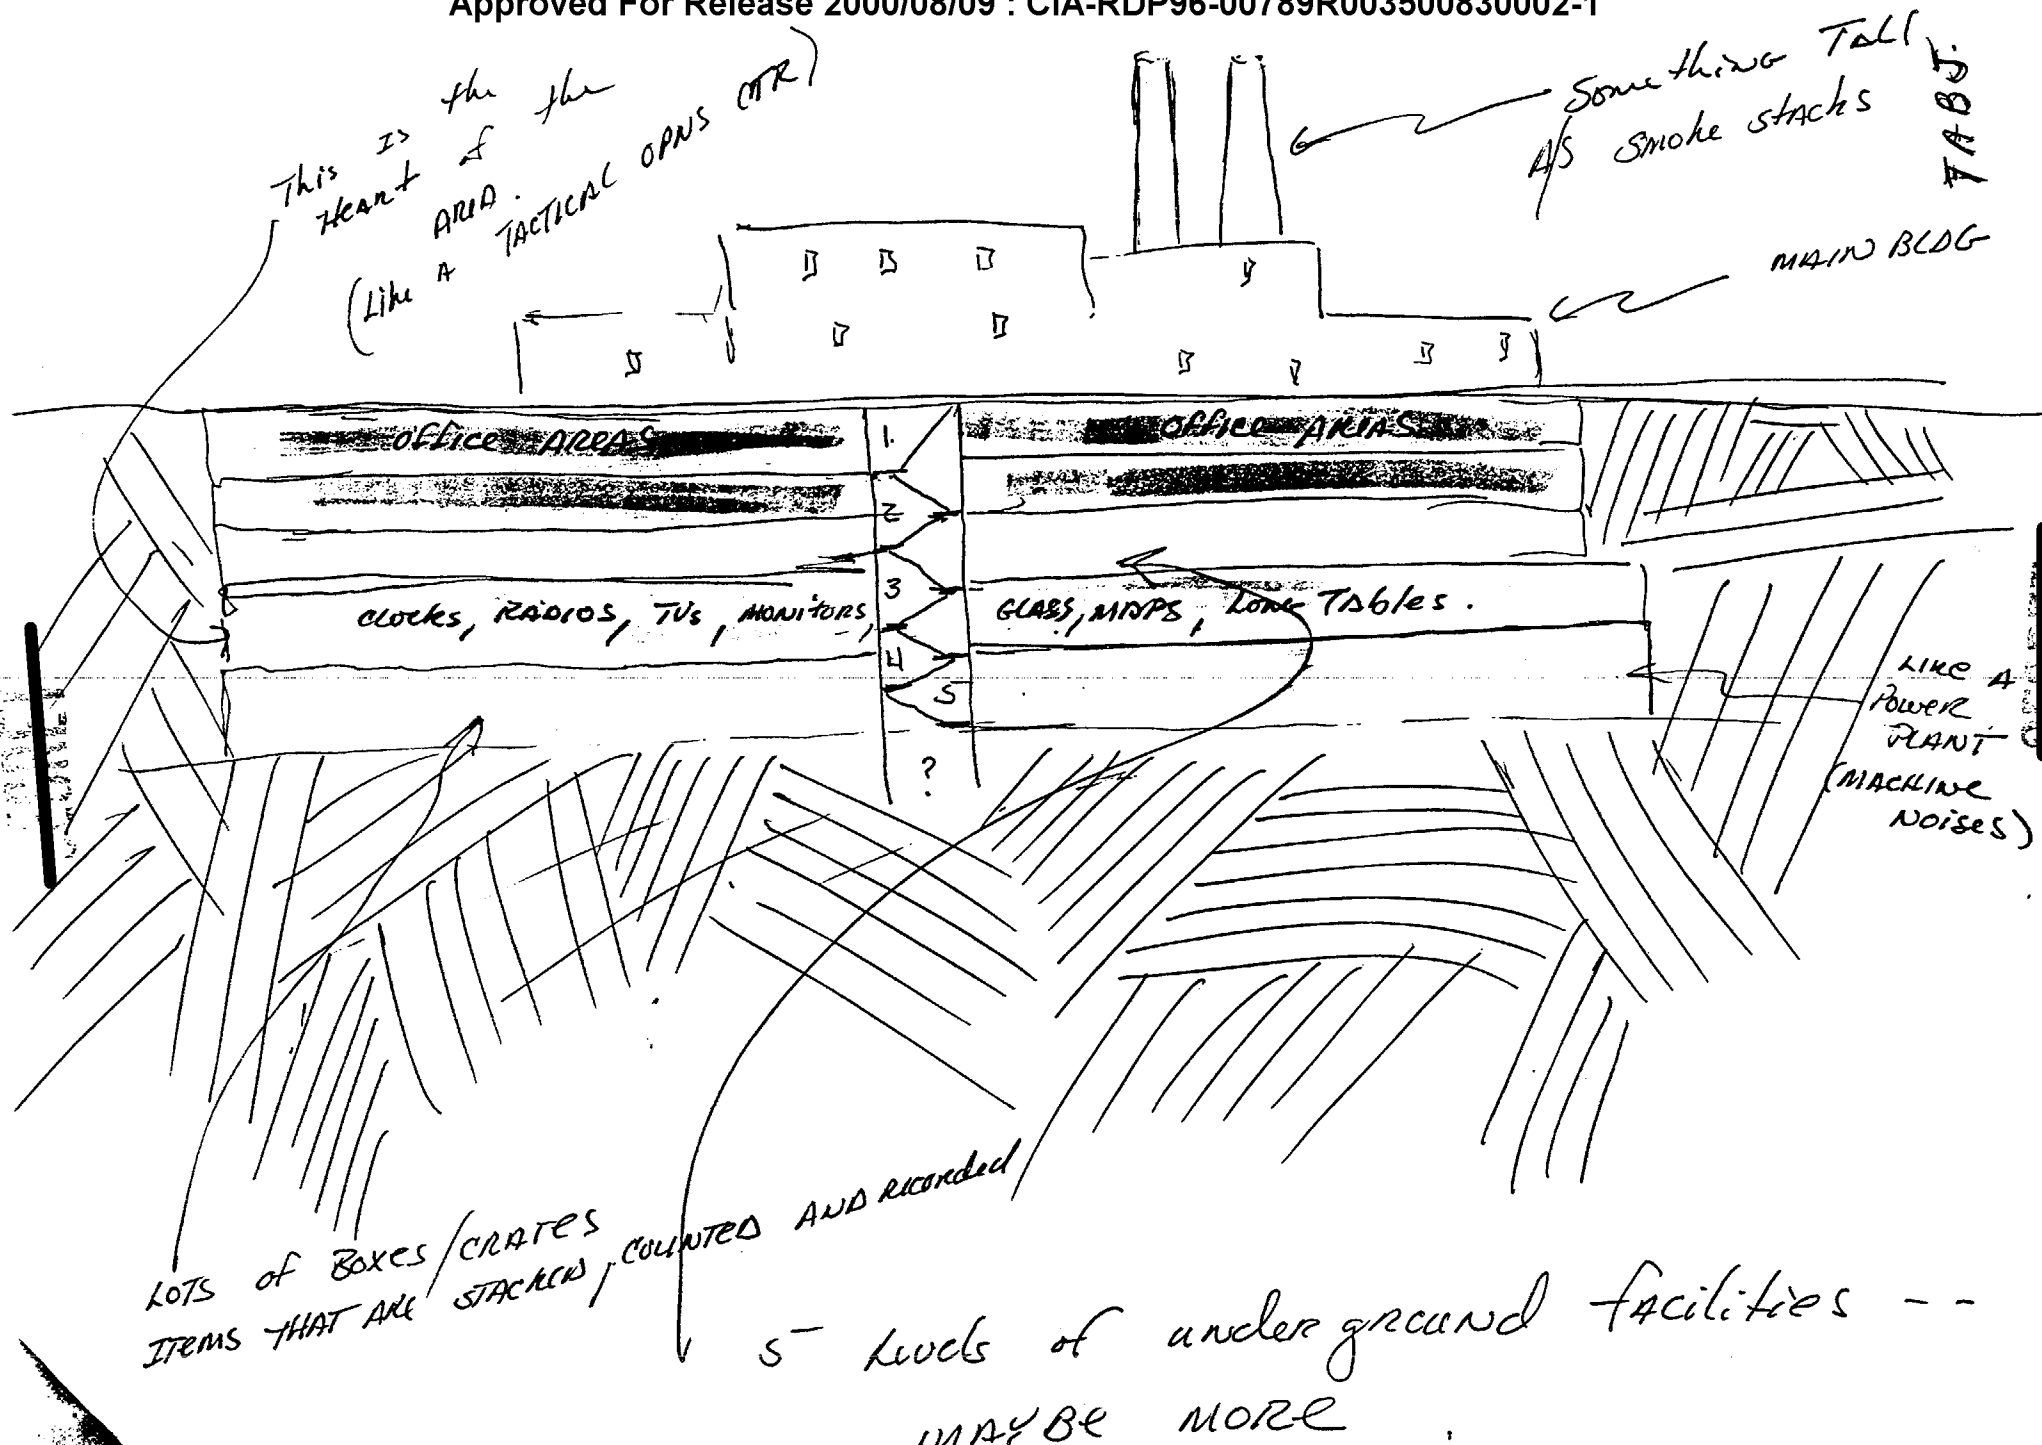 Approved For Release 2000/08/09 : CIA-RDP96-00789R003500830002-1
TAB J.
This is the
Heart of the
AREA.
(Like A TACTICAL OPNS CTR)
Something Tall
AS Smoke stacks
MAIN BLDG
office AREAS
1.
office AREAS
2
3
clocks, RADIOS, TVs, MONITORS,
GLASS, MAPS, Long TAbles.
4
5
?
LIKE A
Power
PLANT
(MACHINE
Noises)
LOTS of Boxes/CRATES
ITEMS THAT ARE STACKED, COUNTED AND Recorded
5 Levels of underground facilities --
MAYBE MORE